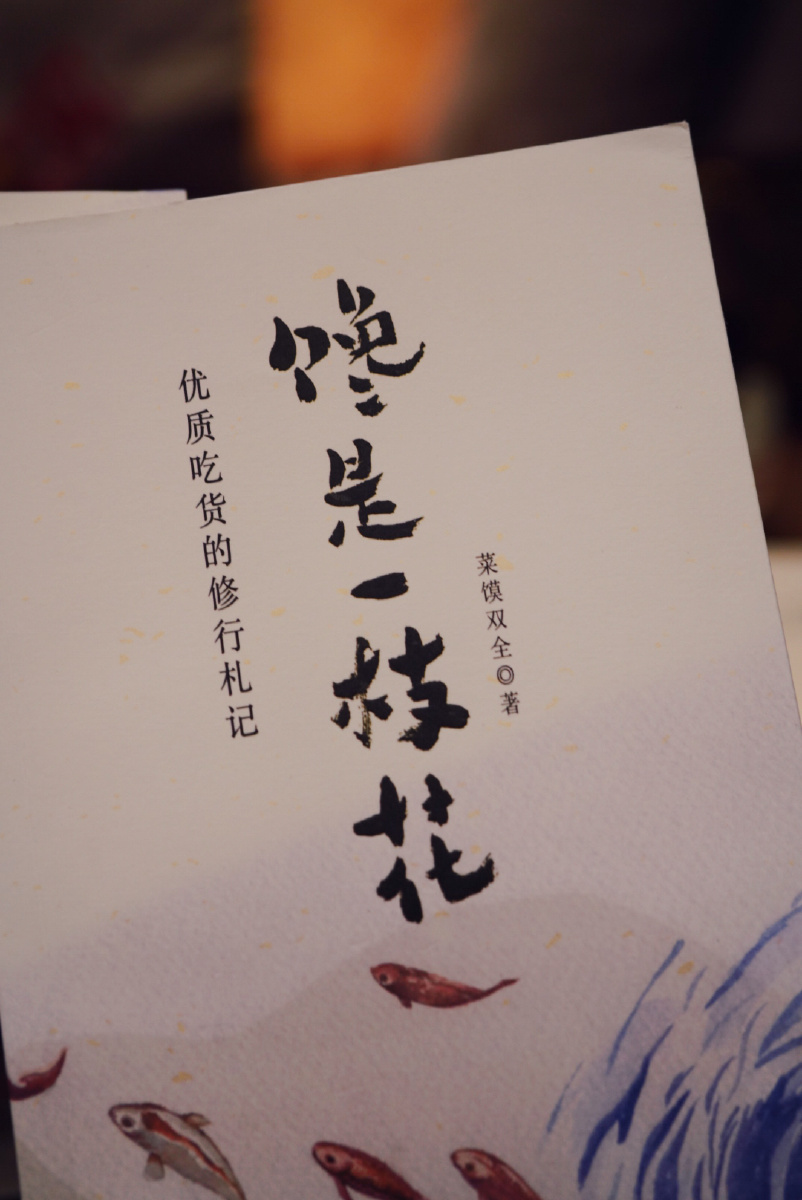 馋是一枝花
优质吃货的修行札记
菜馍双全◎著